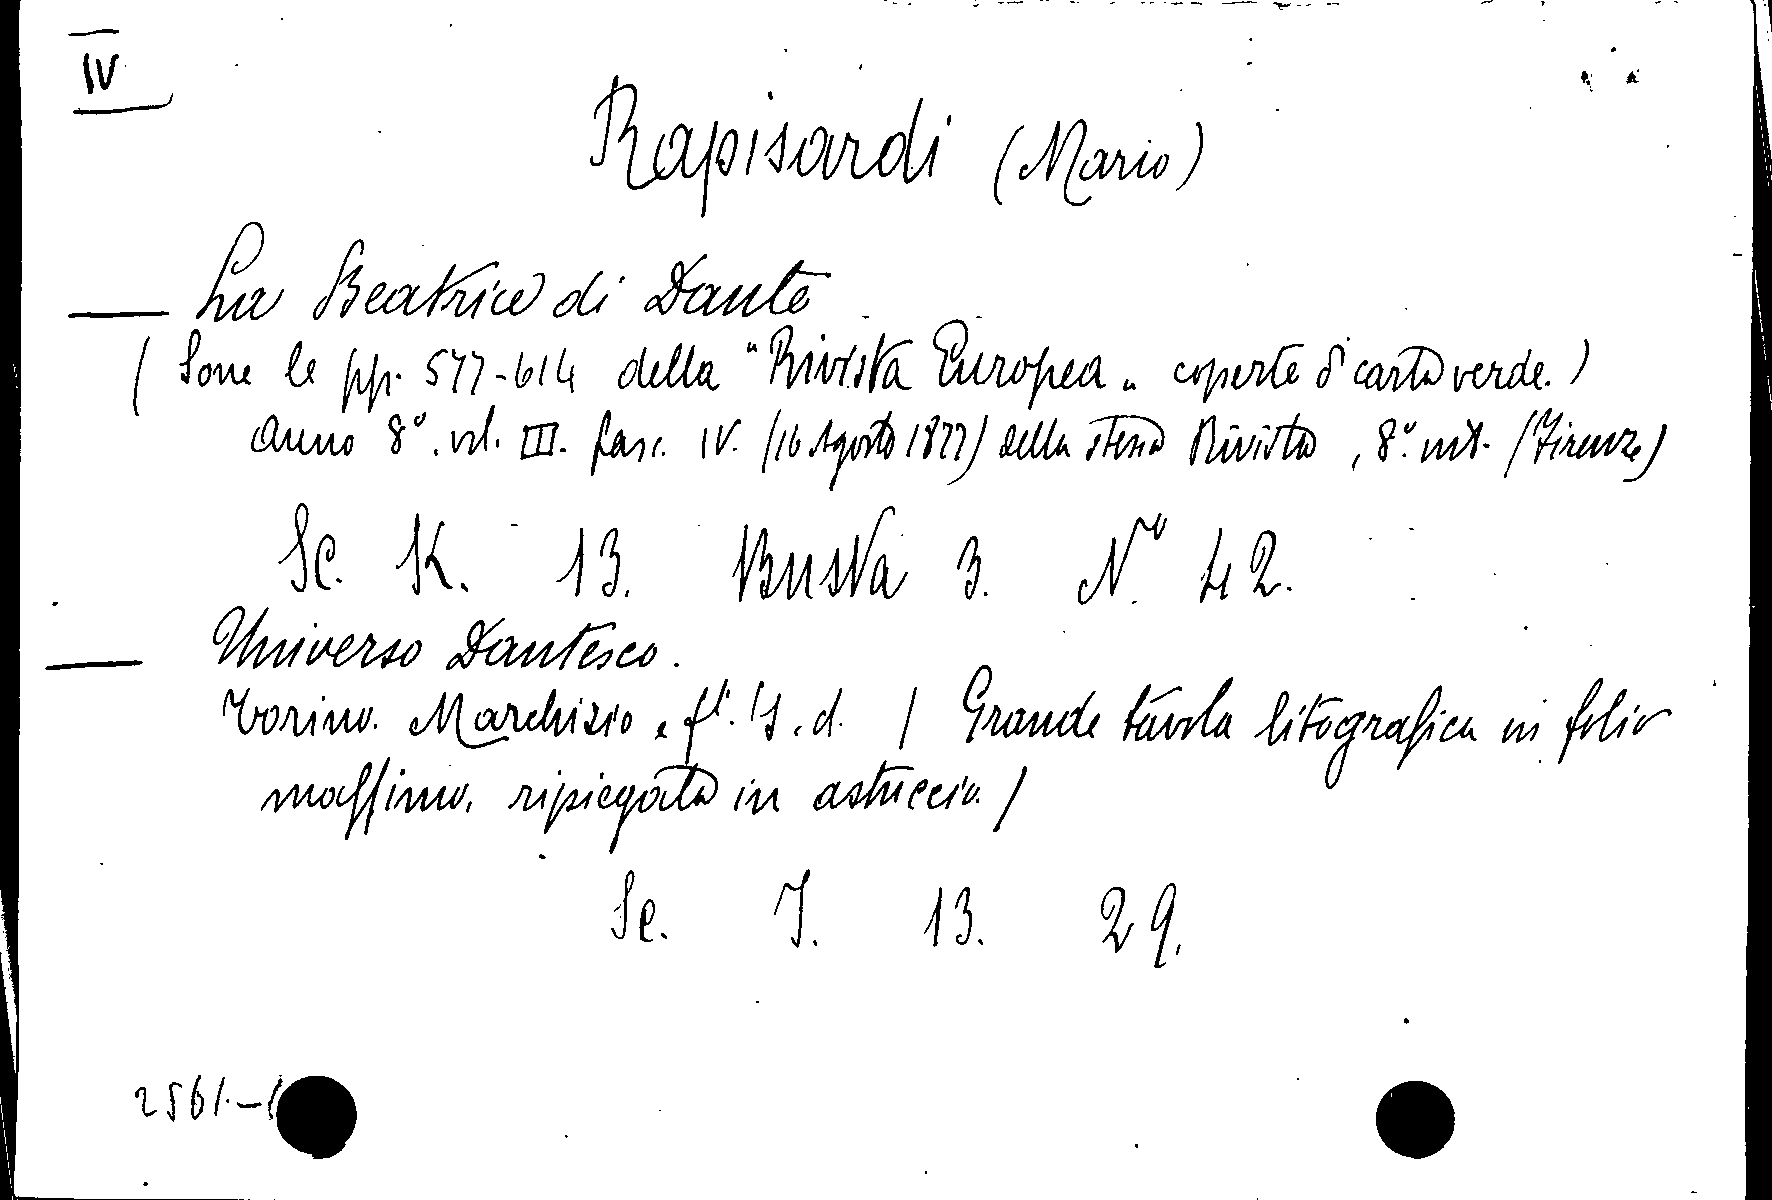 IV
Rapisardi (Mario)
— La Beatrice di Dante
( Sone le pp. 577-614 della "Rivista Europea„ coperte di carta verde.)
Anno 8º. vol. III. fasc. IV. (16 Agosto 1877) della stessa Rivista, 8º. (Firenze)
Sc. K. 13. Busta 3. Nº 42.
— Universo Dantesco.
Torino. Marchisio e fli. s.d. ( Grande tavola litografica in folio
massimo, ripiegata in astuccio.)
Sc. I. 13. 29.
2561.-